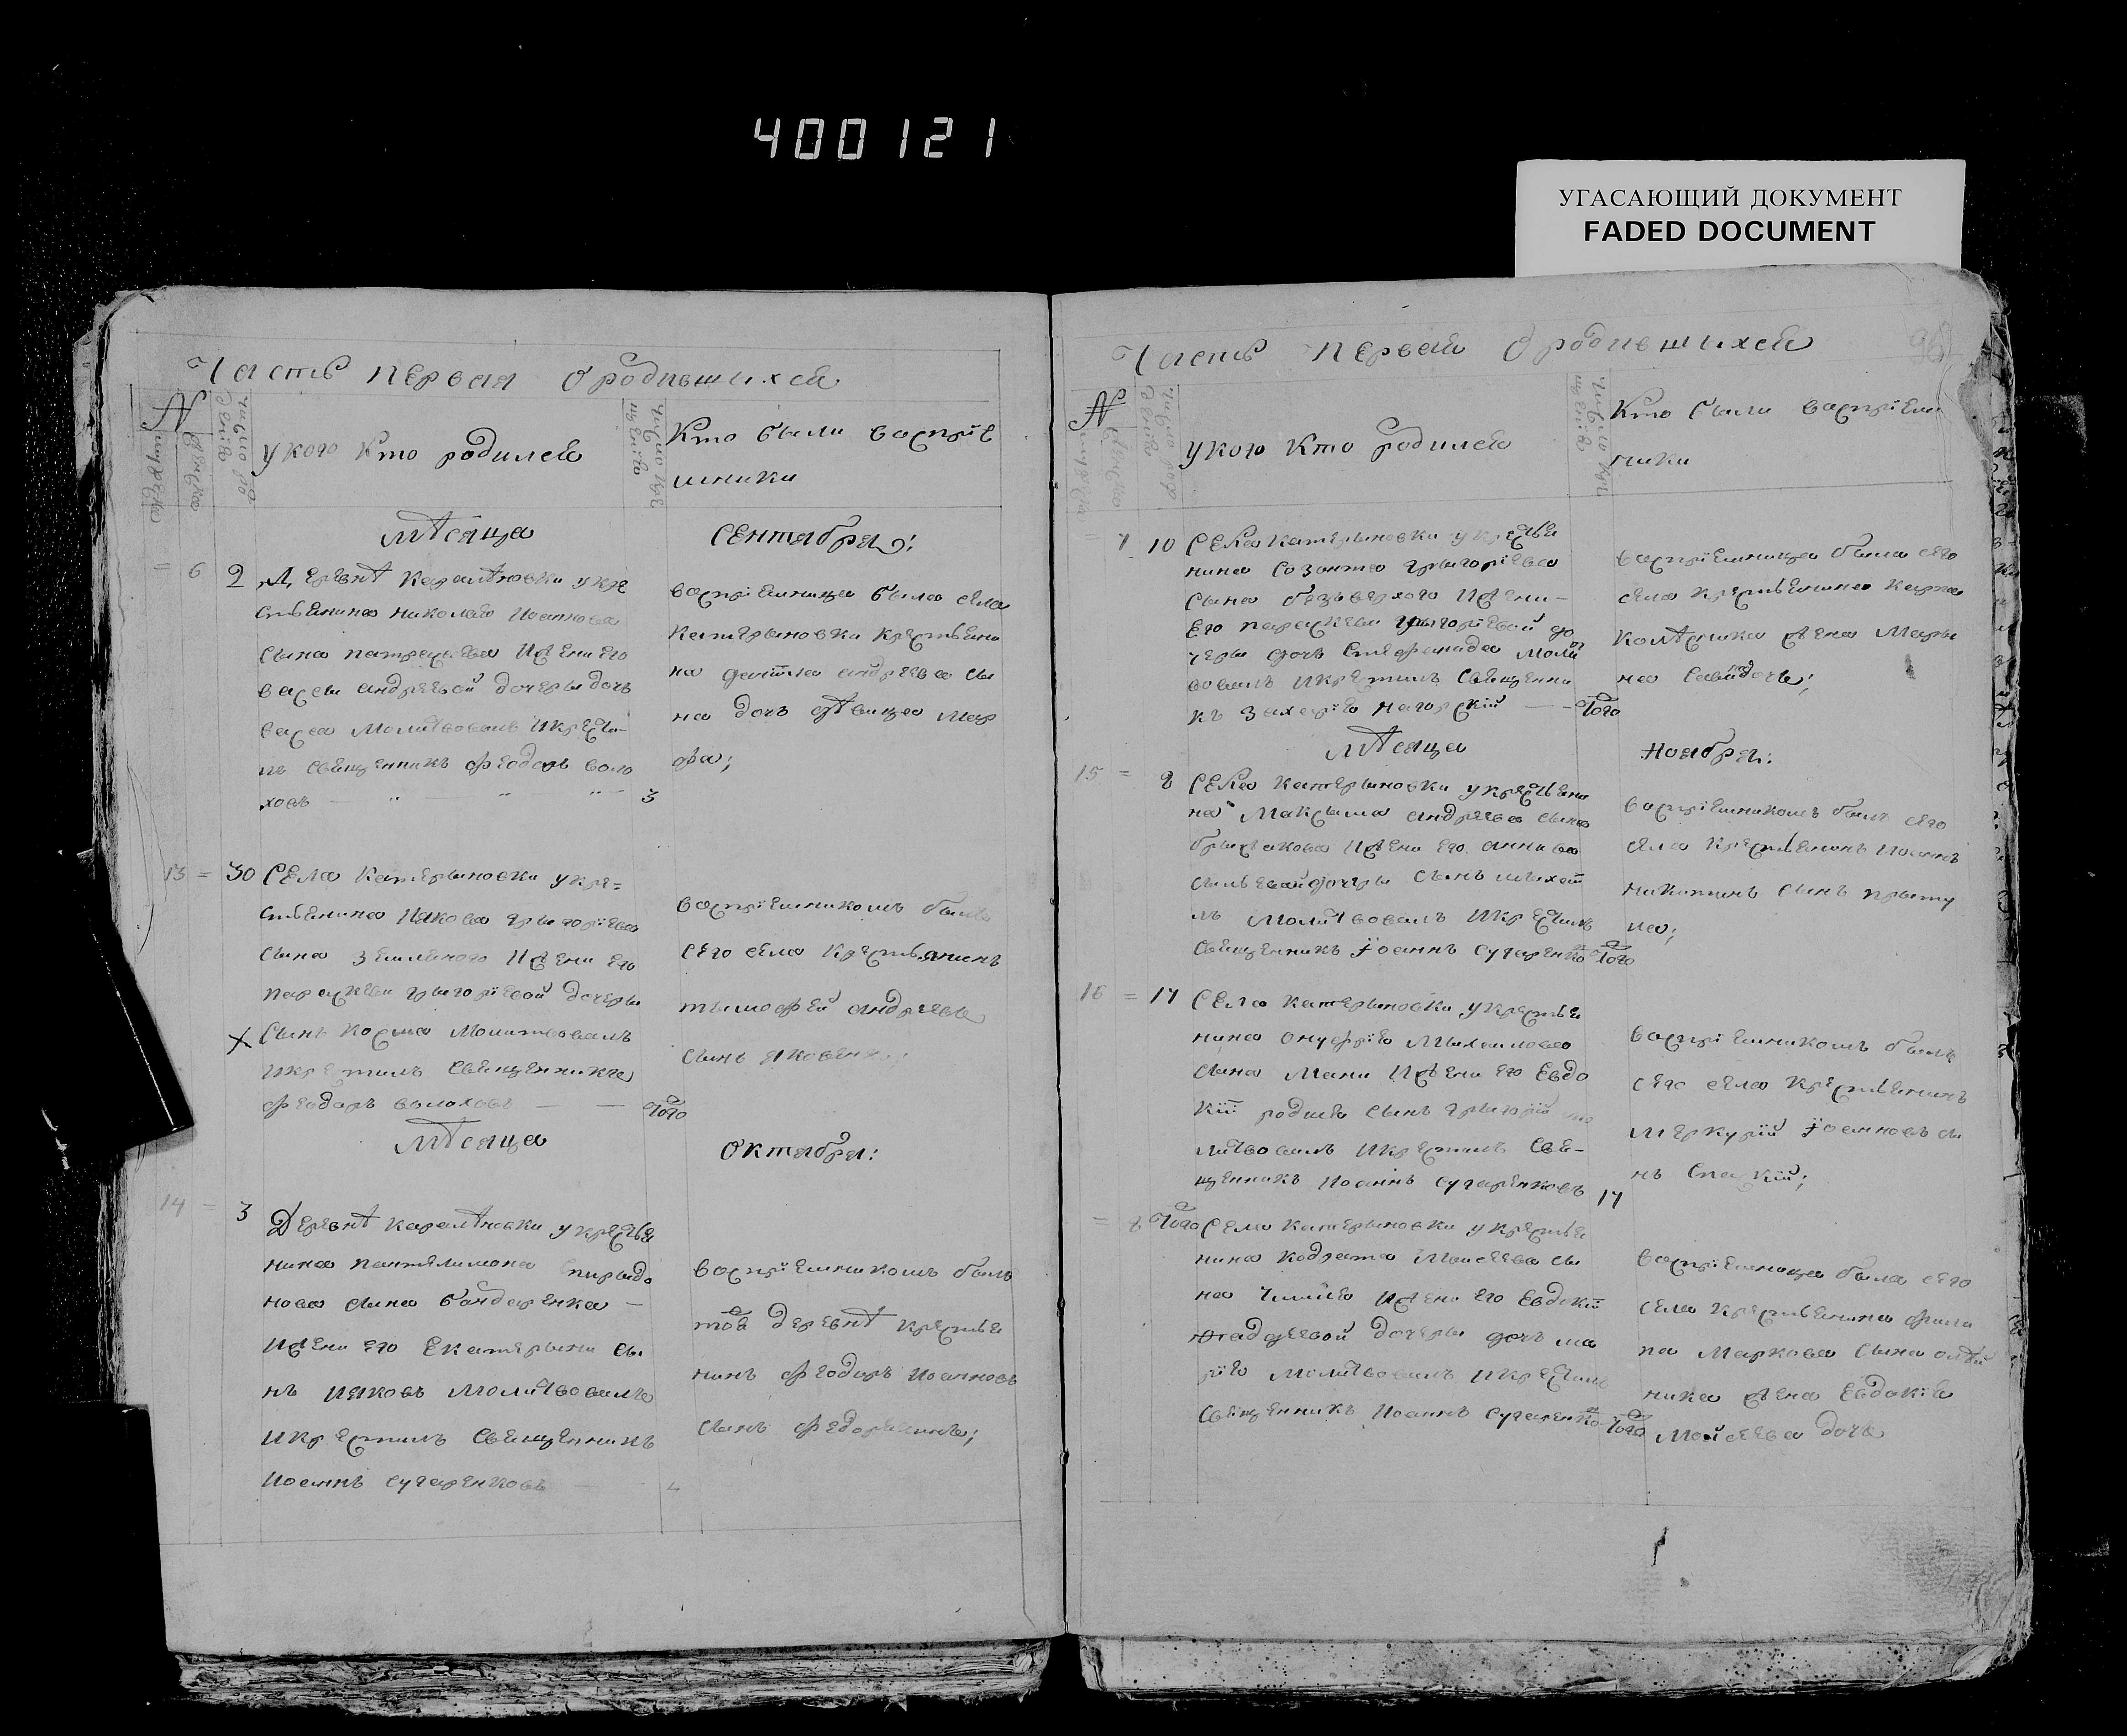 400121
УГАСАЮЩИЙ ДОКУМЕНТ
FADED DOCUMENT
Часть первая о родившихся
№
у кого кто родился
Кто были воспріе
мники
мѣсяца
Сентября:
6 2 Деревнѣ Карапѣновки у кре
стьянина николая Иоаннова
сына И жени его
васси андреевой дочеры дочь
васса Молитвовалъ И крести
лъ Священникъ феодоръ воло
ховъ 3
воспріемница была села
Катерыновки крестьяни
на данила андреева сы
на дочь дѣвица мар
фа;
13 = 30 Села Катерыновки у кре=
стьянина Иякова григоріева
сына земляного И жени его
параскеви григоріевой дочеры
Сынъ Косма Молитвовалъ
И крестилъ Священникъ
феодоръ волоховъ — — того
воспріемникомъ былъ
Сего села крестьянинъ
тымофей андреевъ
сынъ
мѣсяца
Октября:
14 = 3 Деревнѣ Карапѣновки у крестья
нина пантелимона спирыдо
нова сына бондаренка —
И жени его Екатерыни Сы
нъ Ияковъ Молитвовалъ
И крестилъ Священникъ
Иоаннъ сучаренковъ 4
воспріемникомъ былъ
той деревнѣ крестья
нинъ феодоръ Иоанновъ
сынъ
Часть первая о родившихся
№
у кого кто родился
Кто были воспріем
ники
7 10 Села Катерыновки у крестья
нина Созонта григоріева
Сына безверхого И жени—
Его параскеви григоріевой до
черы дочь Стефанида Моли
вовалъ И крестилъ Священни
къ Захарія Нагорскій — — того
воспріемница была сего
села крестьянина карпа
колѣсника жена Мары
на Савина дочь;
мѣсяца
Ноября:
15 = 8 Села Катерыновки у крестьяни
на Максыма андреева сына
И жени его анни ва
сильевой дочеры Сынъ мыхай
лъ Молитвовалъ И крестилъ
священникъ Іоаннъ сучаренко того
воспріемникомъ былъ сего
села крестьянинъ Иоаннъ
никитинъ сынъ прыту
ла;
16 = 17 Села Катерыновки у крестья
нина онуфрія Мыхайлова
сына Мани И жени его Евдо
кіи родился Сынъ григорій мо
литвовалъ И крестилъ Свя—
щенникъ Иоаннъ сучаренковъ 17
воспріемникомъ былъ
сего села крестьянинъ
Меркурій Іоанновъ сы
нъ Спаскій;
= 8 того Села Катерыновки у крестья
нина кодрата Моисеева сы
на И жени его Евдокіи
фаддеевой дочеры дочь ма
рія молитвовалъ И крестилъ
священникъ Иоаннъ сучаренко того
воспріемница была сего
села крестьянина фили
па Маркова Сына олѣй
ника жена Евдокія
Мойсеева дочь